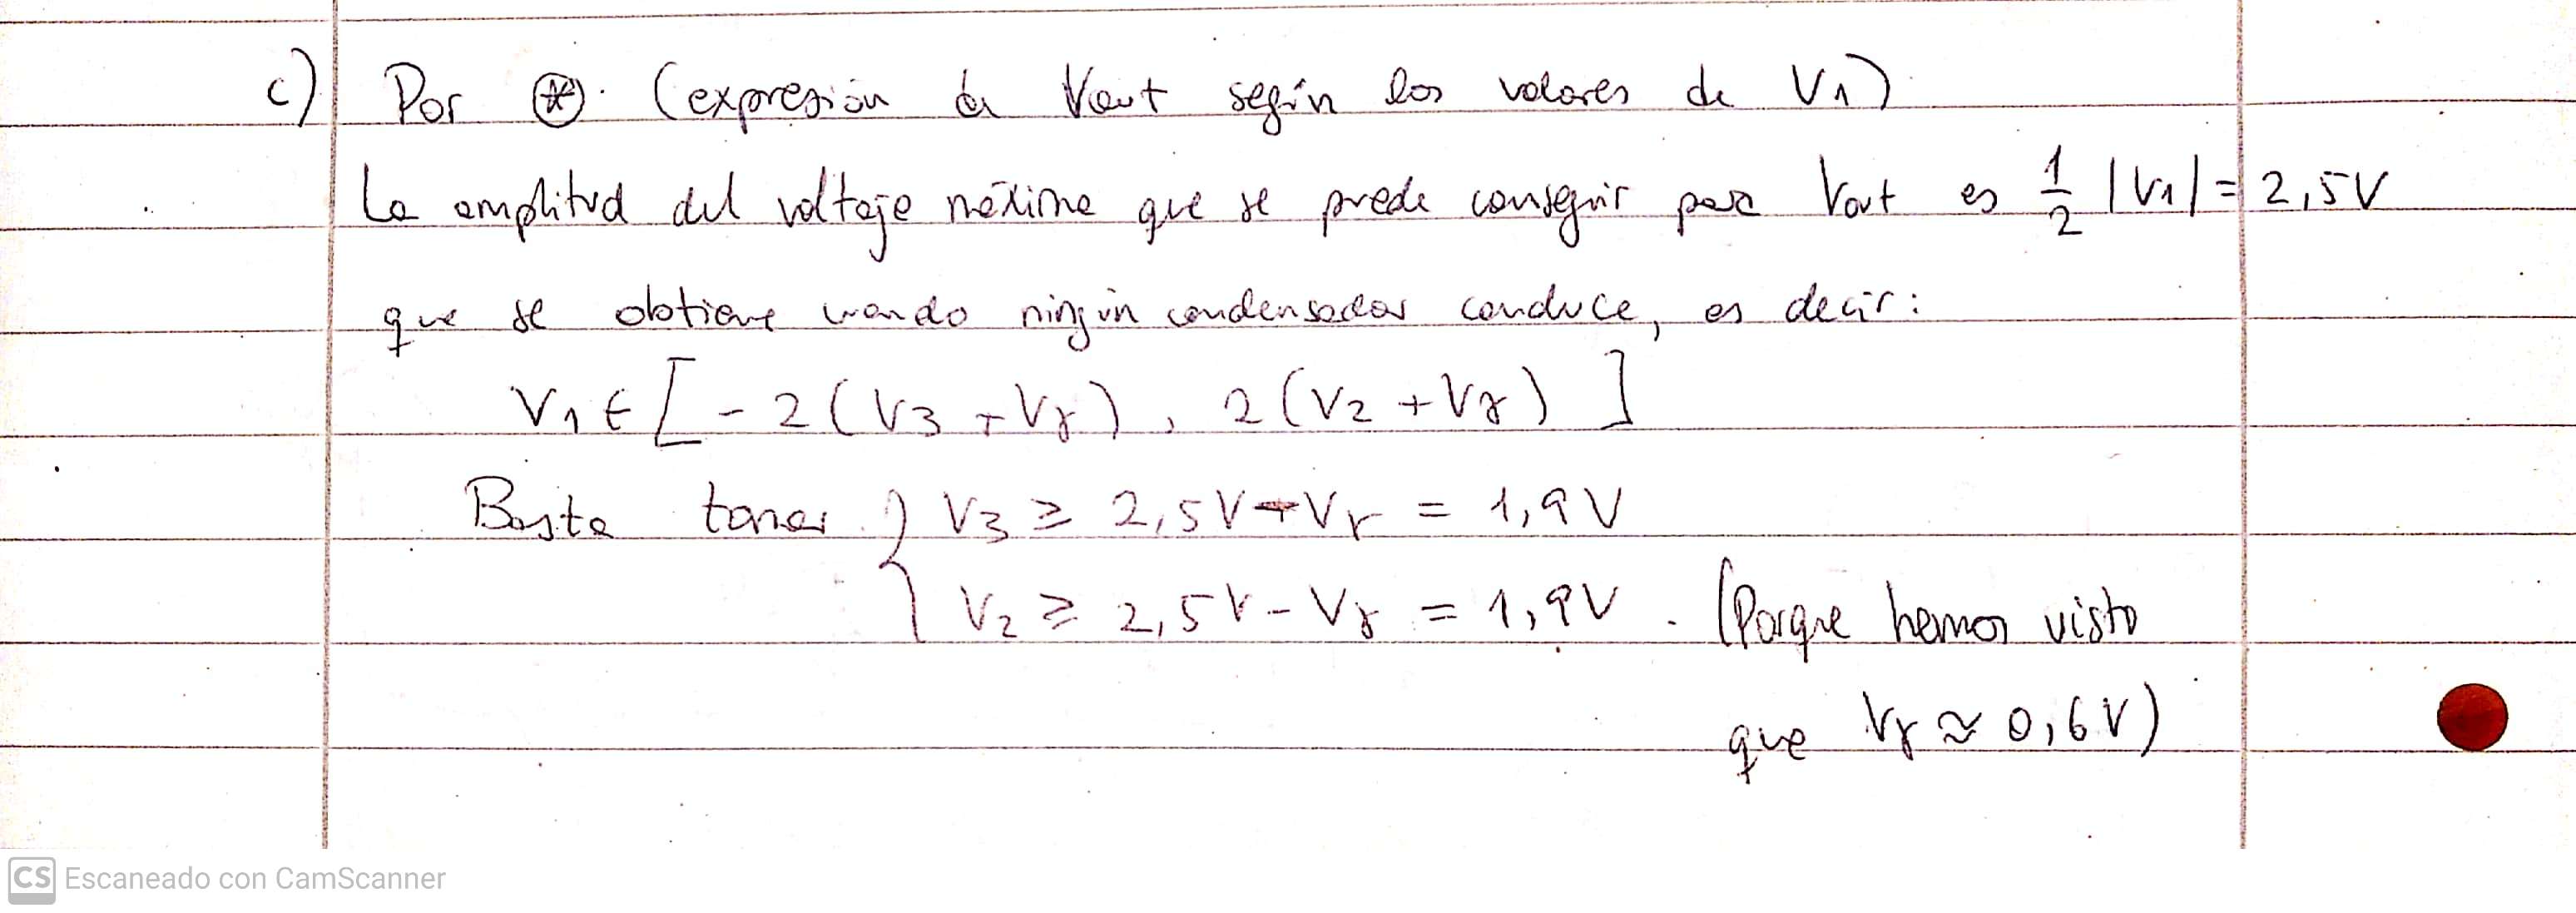 c) Por ⊛. (expresión de Vout según los valores de V1)
La amplitud del voltaje máximo que se puede conseguir para Vout es 1/2 |V1| = 2,5V
que se obtiene cuando ningún condensador conduce, es decir:
V1 ∈ [ -2(V3 + Vγ), 2(V2 + Vγ) ]
Basta tomar { V3 ≥ 2,5V - Vγ = 1,9V
V2 ≥ 2,5V - Vγ = 1,9V. (Porque hemos visto
que Vγ ≈ 0,6V)
CS Escaneado con CamScanner